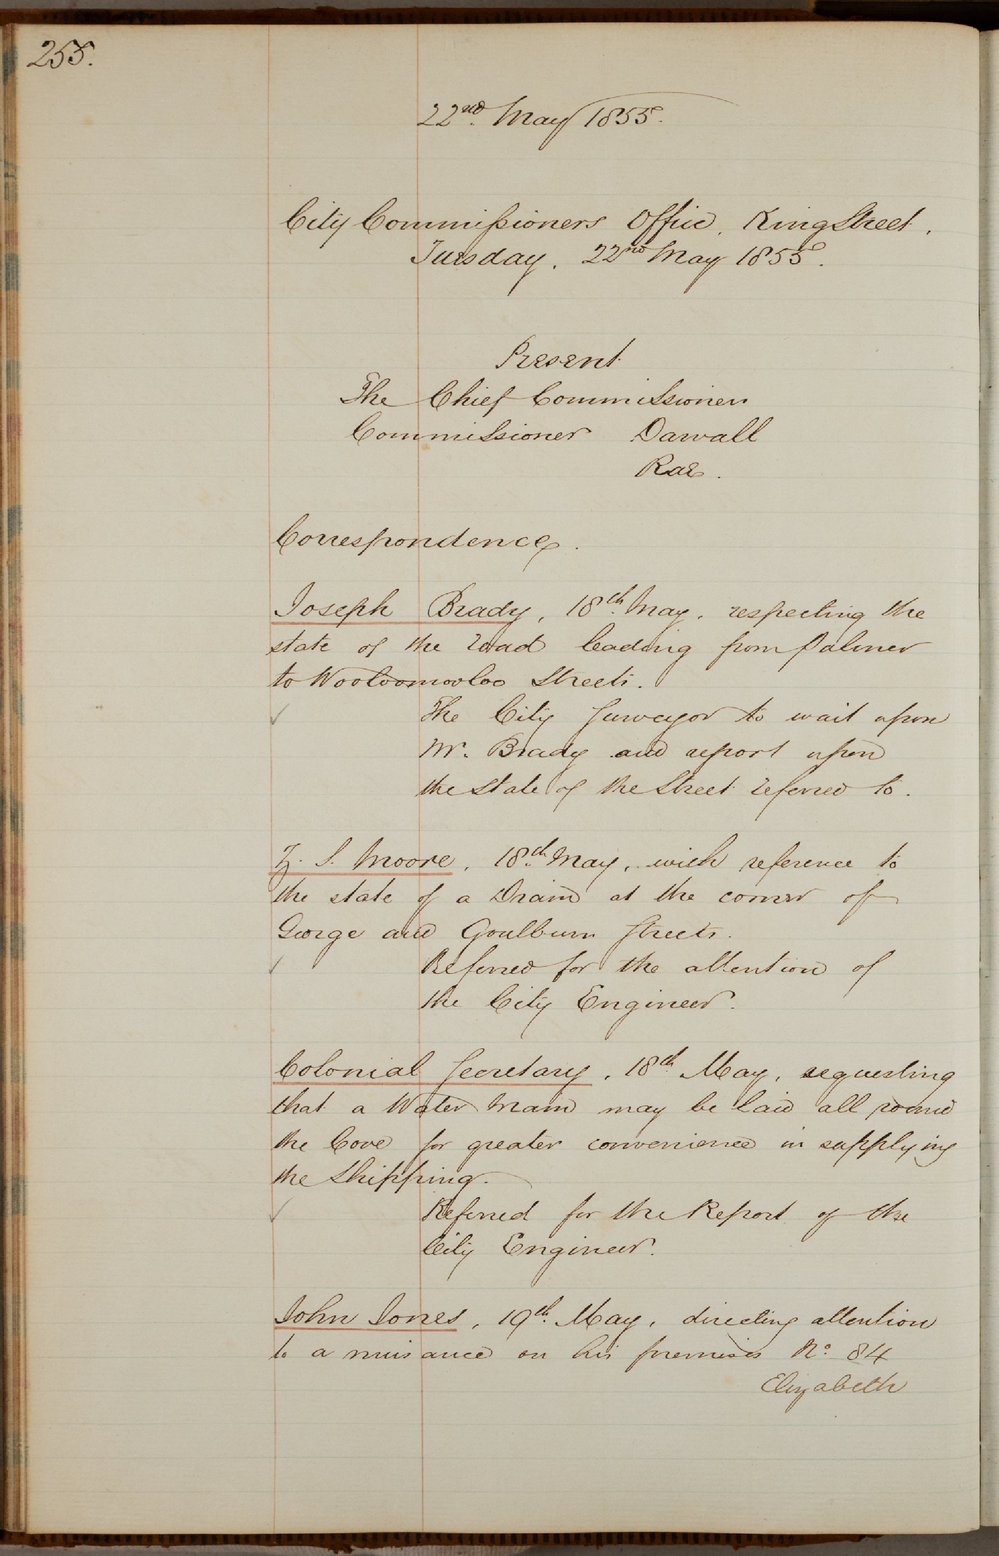 255.
22nd. May 1855.
City Commissioners Office, King Street,
Tuesday, 22nd May 1855.
Present
The Chief Commissioner
Commissioner Darvall
Rae.
Correspondence.
Joseph Brady, 18th. May, respecting the
state of the road leading from Palmer
to Woolloomooloo Streets.
The City Surveyor to wait upon
Mr. Brady and report upon
the state of the Street referred to.
S. Moore, 18th. May, with reference to
the state of a Drain at the corner of
George and Goulburn Streets.
Referred for the attention of
the City Engineer.
Colonial Secretary, 18th. May, requesting
that a Water Main may be laid all round
the Cove for greater convenience in supplying
the Shipping.
Referred for the Report of the
City Engineer.
John Jones, 19th. May, directing attention
to a nuisance on his premises No. 84
Elizabeth